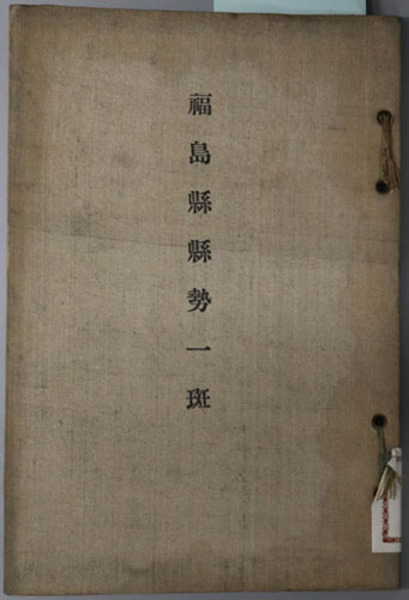 福島縣縣勢一斑